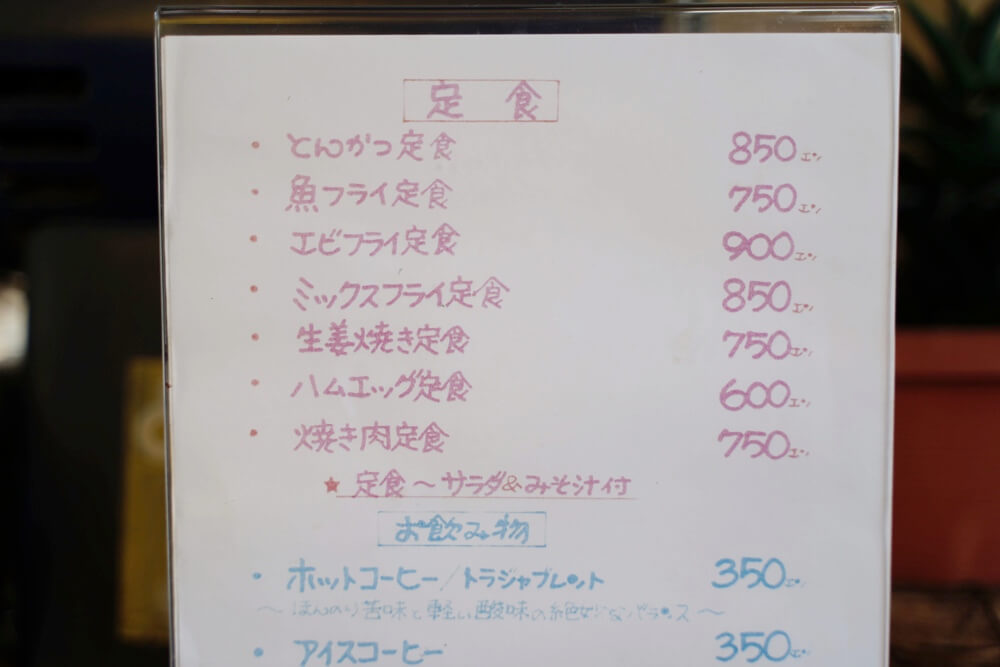 定食
・とんかつ定食 850エン
・魚フライ定食 750エン
・エビフライ定食 900エン
・ミックスフライ定食 850エン
・生姜焼き定食 750エン
・ハムエッグ定食 600エン
・焼き肉定食 750エン
★定食～サラダ&みそ汁付
お飲み物
・ホットコーヒー/トラジャブレント 350エン
～ほんのり苦味と軽い酸味の絶妙なバランス～
・アイスコーヒー 350エン